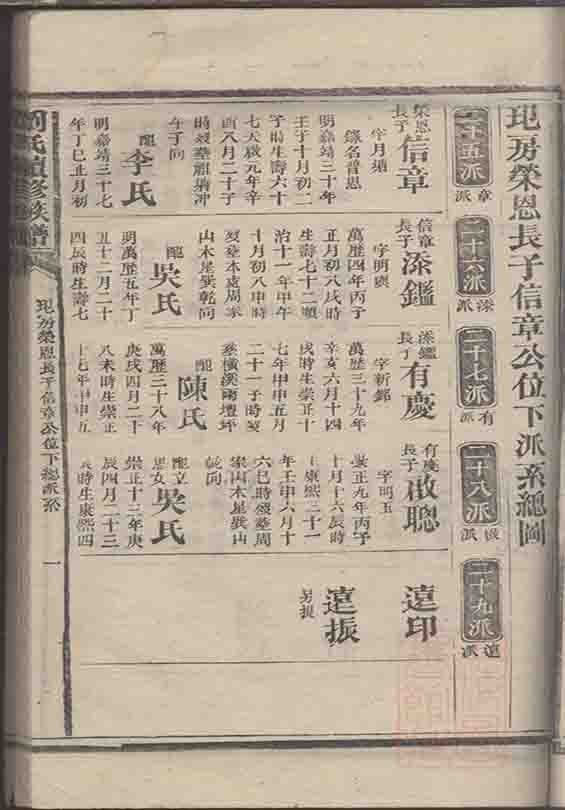 玘房榮恩長子信章公位下派系總圖
二十五派
章派
榮恩長子信章
字月塘
錄名晋恩
明嘉靖三十年
壬子十月初二
子時生壽六十
七天啟元年辛
酉八月二十子
時歿葬龍鵶冲
午丁向
配李氏
明嘉靖三十七
年丁巳正月初
二十六派
深派
信章長子深鑑
字明爽
萬歷四年丙子
正月初八戌時
生壽七十二順
治十一年甲午
十月初八申時
歿葬本處周家
山木星巽乾向
配吳氏
明萬歷五年丁
丑十二月二十
四辰時生壽七
二十七派
有派
深鑑長子有慶
字新郷
萬歷三十九年
辛亥六月十四
戌時生崇正十
七年甲申五月
二十一子時歿
葬橫溪南壇坪
配陳氏
萬歷三十八年
庚戌四月二十
八未時生崇正
十七年甲申五
二十八派
啟派
有慶長子啟聰
字明玉
崇正九年丙子
十月十六辰時
生康熙三十一
年壬申六月十
六巳時歿葬周
家山木星巽山
乾向
配立恩女吳氏
崇正十三年庚
辰四月二十三
辰時生康熙四
二十九派
遠派
遠印
遠振
另提
續修族譜
玘房榮恩長子信章公位下總派系
一